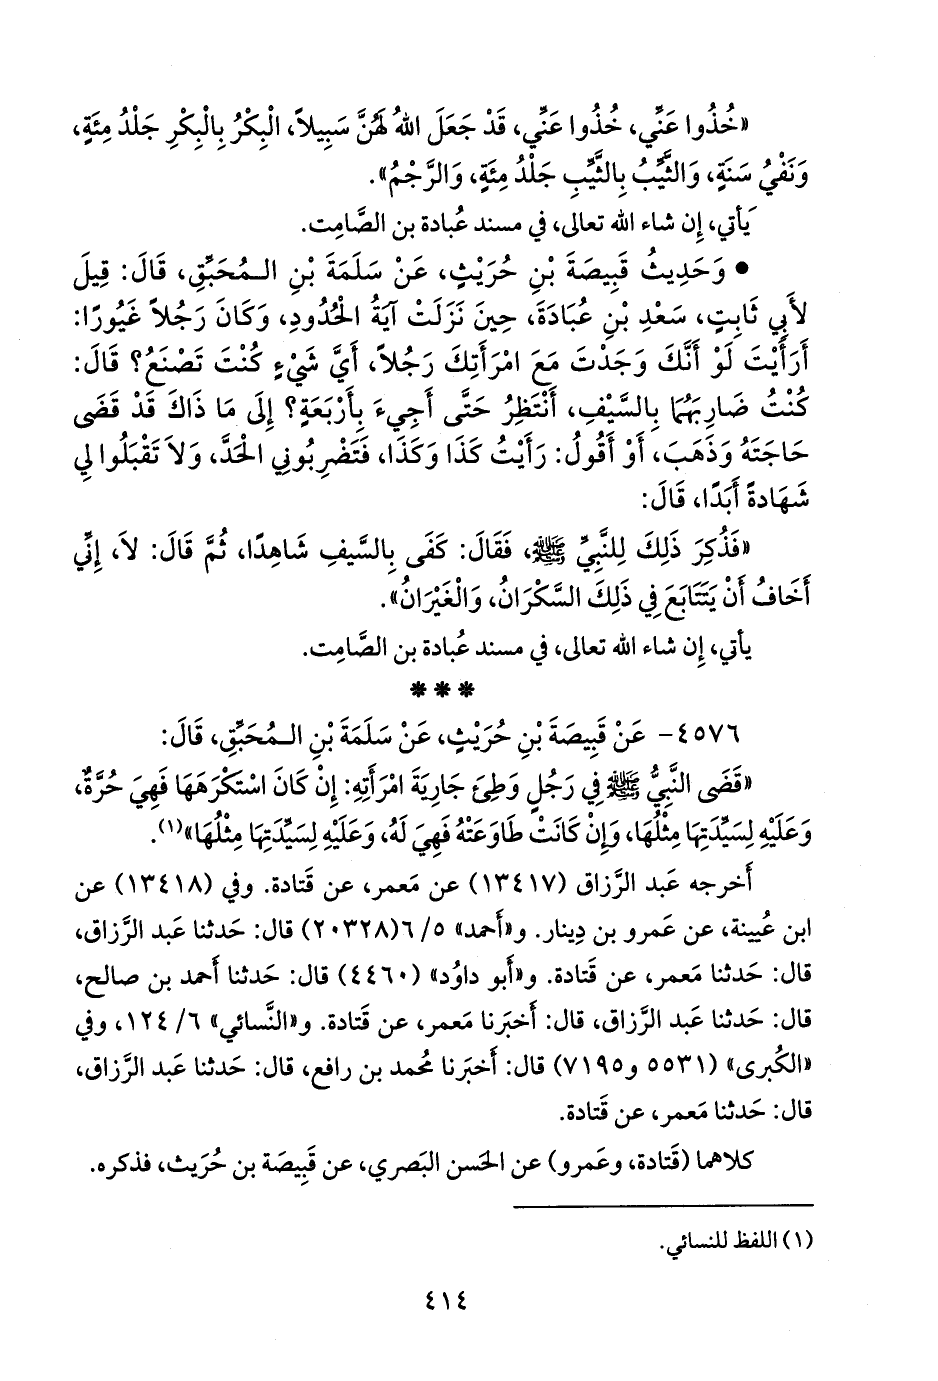 «خُذُوا عَنِّي، خُذُوا عَنِّي، قَدْ جَعَلَ اللهُ لَهُنَّ سَبِيلاً، الْبِكْرُ بِالْبِكْرِ جَلْدُ مِئَةٍ،
وَنَفْيُ سَنَةٍ، وَالثَّيِّبُ بِالثَّيِّبِ جَلْدُ مِئَةٍ، وَالرَّجْمُ».
يَأتي، إن شاء الله تعالى، في مسند عُبادة بن الصَّامِت.
• وَحَدِيثُ قَبِيصَةَ بْنِ حُرَيْثٍ، عَنْ سَلَمَةَ بْنِ الـمُحَبِّقِ، قَالَ: قِيلَ
لأَبِي ثَابِتٍ، سَعْدِ بْنِ عُبَادَةَ، حِينَ نَزَلَتْ آيَةُ الْحُدُودِ، وَكَانَ رَجُلاً غَيُورًا:
أَرَأَيْتَ لَوْ أَنَّكَ وَجَدْتَ مَعَ امْرَأَتِكَ رَجُلاً، أَيَّ شَيْءٍ كُنْتَ تَصْنَعُ؟ قَالَ:
كُنْتُ ضَارِبَهُمَا بِالسَّيْفِ، أَنْتَظِرُ حَتَّى أَجِيءَ بِأَرْبَعَةٍ؟ إِلَى مَا ذَاكَ قَدْ قَضَى
حَاجَتَهُ وَذَهَبَ، أَوْ أَقُولُ: رَأَيْتُ كَذَا وَكَذَا، فَتَضْرِبُونِي الْحَدَّ، وَلاَ تَقْبَلُوا لِي
شَهَادَةً أَبَدًا، قَالَ:
«فَذُكِرَ ذَلِكَ لِلنَّبِيِّ ﷺ، فَقَالَ: كَفَى بِالسَّيفِ شَاهِدًا، ثُمَّ قَالَ: لاَ، إِنِّي
أَخَافُ أَنْ يَتَتَابَعَ فِي ذَلِكَ السَّكْرَانُ، وَالْغَيْرَانُ».
يأتي، إن شاء الله تعالى، في مسند عُبادة بن الصَّامِت.
***
٤٥٧٦- عَنْ قَبِيصَةَ بْنِ حُرَيْثٍ، عَنْ سَلَمَةَ بْنِ الـمُحَبِّقِ، قَالَ:
«قَضَى النَّبِيُّ ﷺ فِي رَجُلٍ وَطِئَ جَارِيَةَ امْرَأَتِهِ: إِنْ كَانَ اسْتَكْرَهَهَا فَهِيَ حُرَّةٌ،
وَعَلَيْهِ لِسَيِّدَتِهَا مِثْلُهَا، وَإِنْ كَانَتْ طَاوَعَتْهُ فَهِيَ لَهُ، وَعَلَيْهِ لِسَيِّدَتِهَا مِثْلُهَا»(١).
أخرجه عَبد الرَّزاق (١٣٤١٧) عن مَعمر، عن قَتادة. وفي (١٣٤١٨) عن
ابن عُيينة، عن عَمرو بن دِينار. و«أحمد» ٥/ ٦(٢٠٣٢٨) قال: حَدثنا عَبد الرَّزاق،
قال: حَدثنا مَعمر، عن قَتادة. و«أبو داوُد» (٤٤٦٠) قال: حَدثنا أَحمد بن صالح،
قال: حَدثنا عَبد الرَّزاق، قال: أَخبَرنا مَعمر، عن قَتادة. و«النَّسائي» ٦/ ١٢٤، وفي
«الكُبرى» (٥٥٣١ و٧١٩٥) قال: أَخبَرنا مُحمد بن رافع، قال: حَدثنا عَبد الرَّزاق،
قال: حَدثنا مَعمر، عن قَتادة.
كلاهما (قَتادة، وعَمرو) عن الحَسن البَصري، عن قَبِيصَة بن حُرَيث، فذكره.
(١) اللفظ للنسائي.
٤١٤